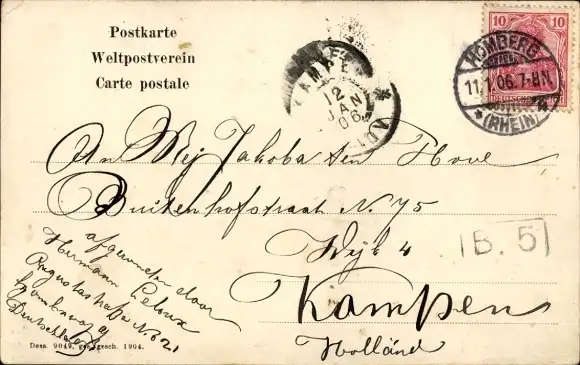 Postkarte
Weltpostverein
Carte postale
10 10
DEUTSCHES
HOMBERG
11.1.06.7-8N.
*(RHEIN)
KAMPEN
12
JAN
06
An Mej Jakoba ten Hove
Buitenhofstraat N. 75
Wijk 4
B. 5
Kampen
Holland
afgezonden door
Hermann
Augustastraße No 21
Homberg
Deutschland
Dess. 9049, ges. gesch. 1904.